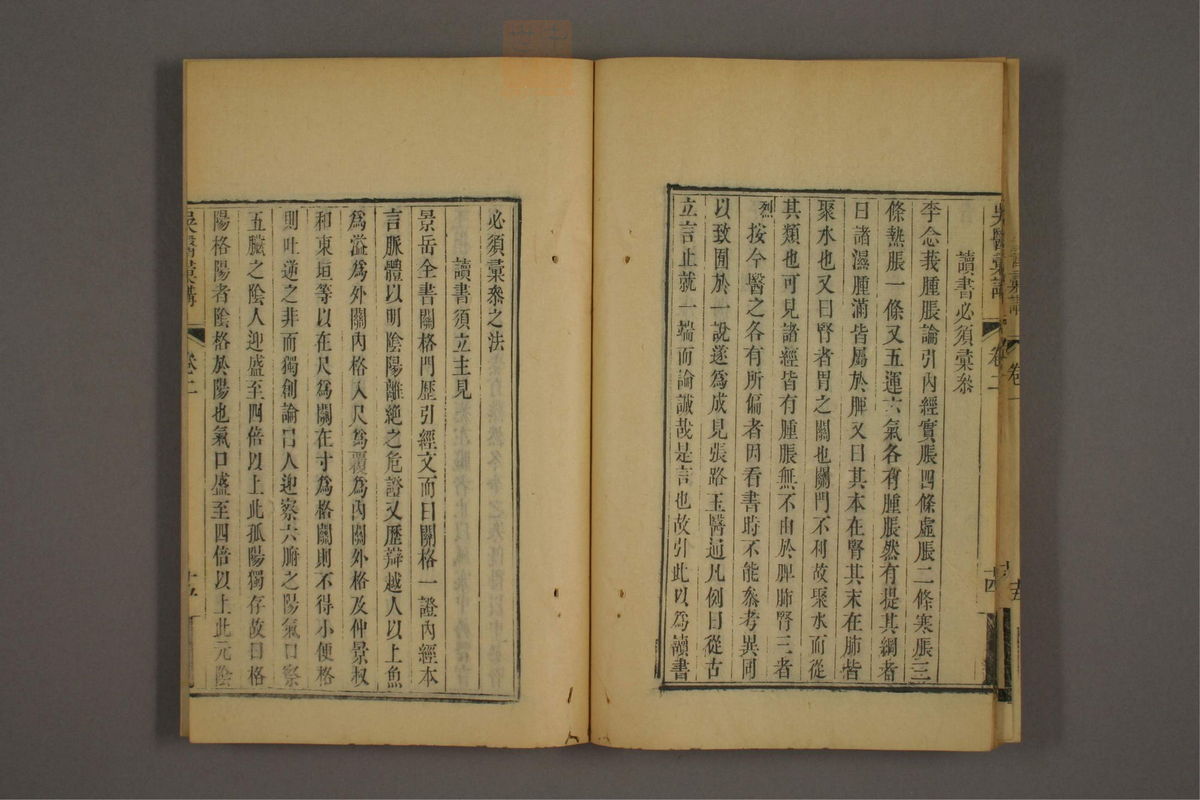 吳醫彙講 卷二 十四
讀書必須彙叅
李念莪腫脹論引內經實脹四條虛脹二條寒脹三
條熱脹一條又五運六氣各有腫脹然有提其綱者
曰諸濕腫滿皆屬於脾又曰其本在腎其末在肺皆
聚水也又曰腎者胃之關也關門不利故聚水而從
其類也可見諸經皆有腫脹無不由於脾肺腎三者
烈
按今醫之各有所偏者因看書時不能叅考異同
以致囿於一說遂爲成見張路玉醫通凡例曰從古
立言止就一端而論誠哉是言也故引此以爲讀書
必須彙叅之法
讀書須立主見
景岳全書關格門歷引經文而曰關格一證內經本
言脈體以明陰陽離絶之危證又歷辯越人以上魚
爲溢爲外關內格入尺爲覆爲內關外格及仲景叔
和東垣等以在尺爲關在寸爲格關則不得小便格
則吐逆之非而獨創論曰人迎察六腑之陽氣口察
五臟之陰人迎盛至四倍以上此孤陽獨存故曰格
陽格陽者陰格於陽也氣口盛至四倍以上此元陰
吳醫彙講 卷二